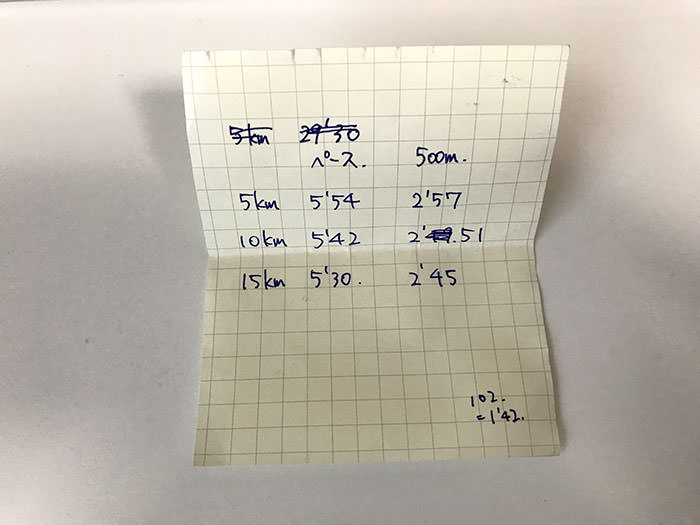 5km 29'30
ペース. 500m.
5km 5'54 2'57
10km 5'42 2'51
15km 5'30. 2'45
102.
=1'42.